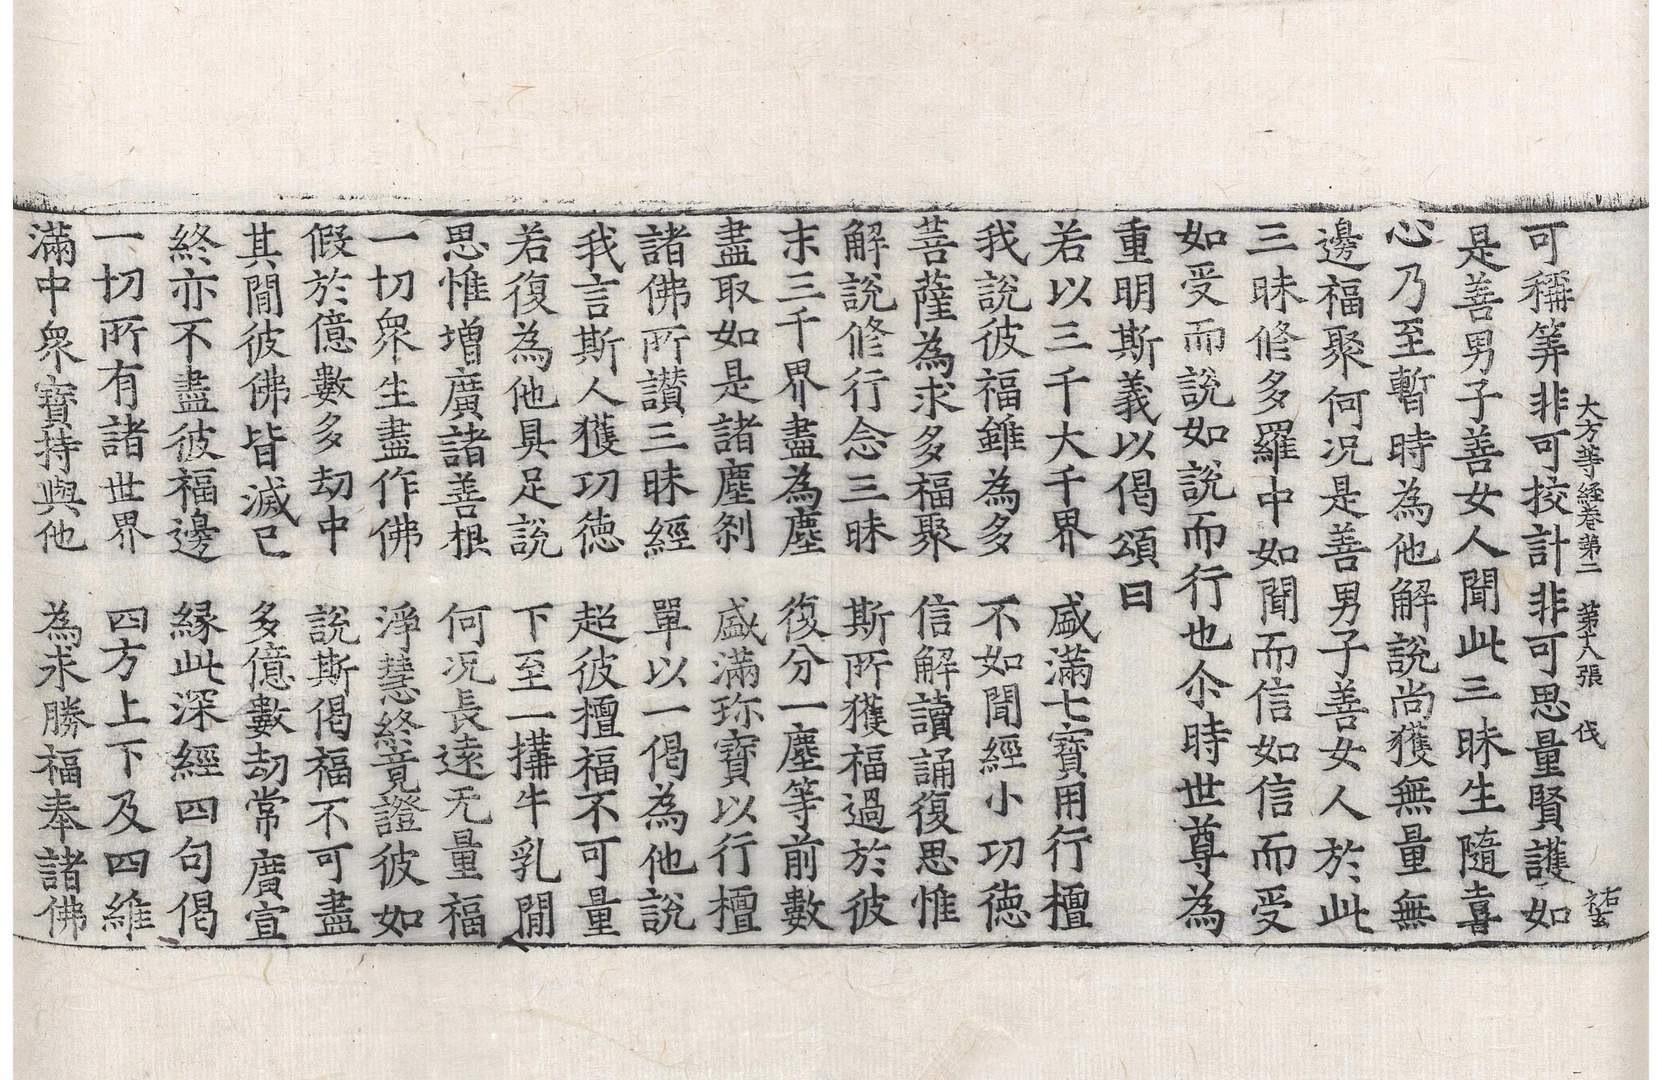 大方等経卷苐二　苐十八張　伐
可稱筭非可挍計非可思量賢護如
是善男子善女人聞此三昧生隨喜
心乃至暫時為他解說尚獲無量無
邊福聚何况是善男子善女人於此
三昧修多羅中如聞而信如信而受
如受而說如說而行也尒時世尊為
重明斯義以偈頌曰
若以三千大千界　盛滿七寶用行檀
我說彼福雖為多　不如聞經小功德
菩薩為求多福聚　信解讀誦復思惟
解說修行念三昧　斯所獲福過於彼
末三千界盡為塵　復分一塵等前數
盡取如是諸塵刹　盛滿珎寶以行檀
諸佛所讃三昧經　單以一偈為他說
我言斯人獲功德　超彼檀福不可量
若復為他具足說　下至一搆牛乳閒
思惟增廣諸善根　何况長遠无量福
一切衆生盡作佛　淨慧終竟證彼如
假於億數多劫中　說斯偈福不可盡
其閒彼佛皆滅已　多億數劫常廣宣
終亦不盡彼福邊　緣此深經四句偈
一切所有諸世界　四方上下及四維
滿中衆寶持與他　為求勝福奉諸佛